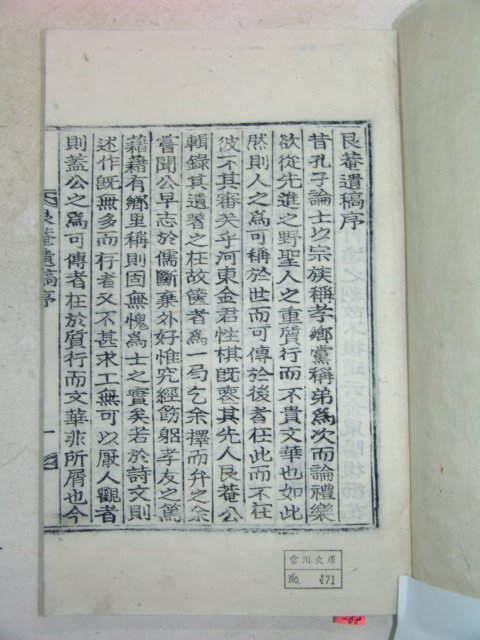 艮菴遺稿序
昔孔子論士以宗族稱孝鄉黨稱弟爲次而論禮樂
欲從先進之野聖人之重質行而不貴文華也如此
然則人之爲可稱於世而可傳於後者在此而不在
彼不其審矣乎河東金君性棋旣裒其先人艮菴公
輯錄其遺著之在故篋者爲一局乞余擇而弁之余
嘗聞公早志於儒斷棄外好惟究經飭躬孝友之篤
藉藉有鄉里稱則固無愧爲士之實矣若於詩文則
述作旣無多而行者又不甚求工無可以厭人觀者
則蓋公之爲可傳者在於質行而文華非所屑也今
艮菴遺稿序
一
雲川文庫
No. 471
-68